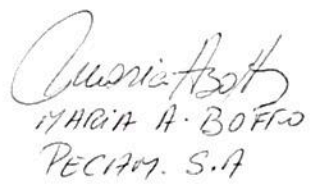 Maria A Boffo
MARIA A. BOFFO
PECIAM. S.A